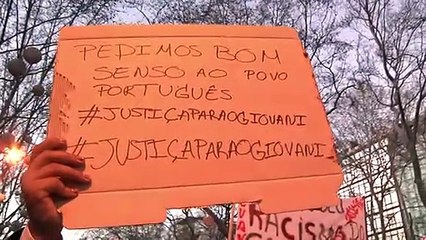 PEDIMOS BOM
SENSO AO POVO
PORTUGUÊS
#JUSTIÇAPARAOGIOVANI
#JUSTIÇAPARAOGIOVANI
RACISMO